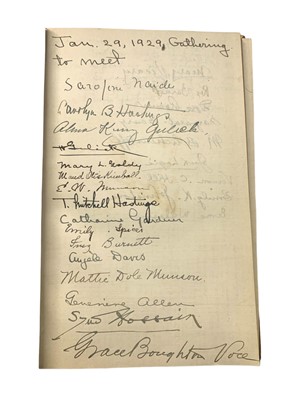 Jan. 29, 1929, Gathering
to meet
Sarojini Naidu
Carolyn B Hastings
Alma Kung Gulick
Mary L. Goldy
Maud Otis Kimball
E. W. Munson
T. Mitchell Hastings
Catharine Gardner
Emily Spires
Inez Burnett
Angela Davis
Mattie Dole Munson
Genevieve Allen
Syud Hossain
Grace Boughton Voce